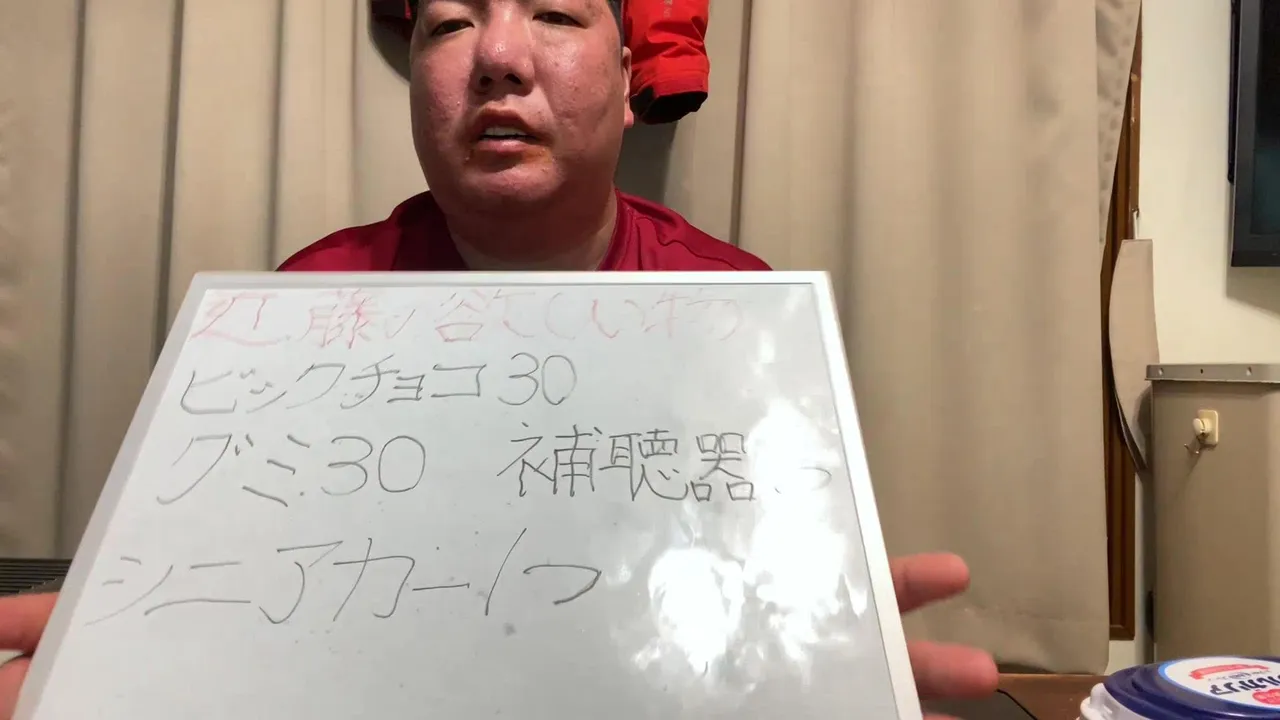 近藤の欲しい物
ビックチョコ30
グミ30 補聴器 1つ
シニアカー1つ
ブルガリア